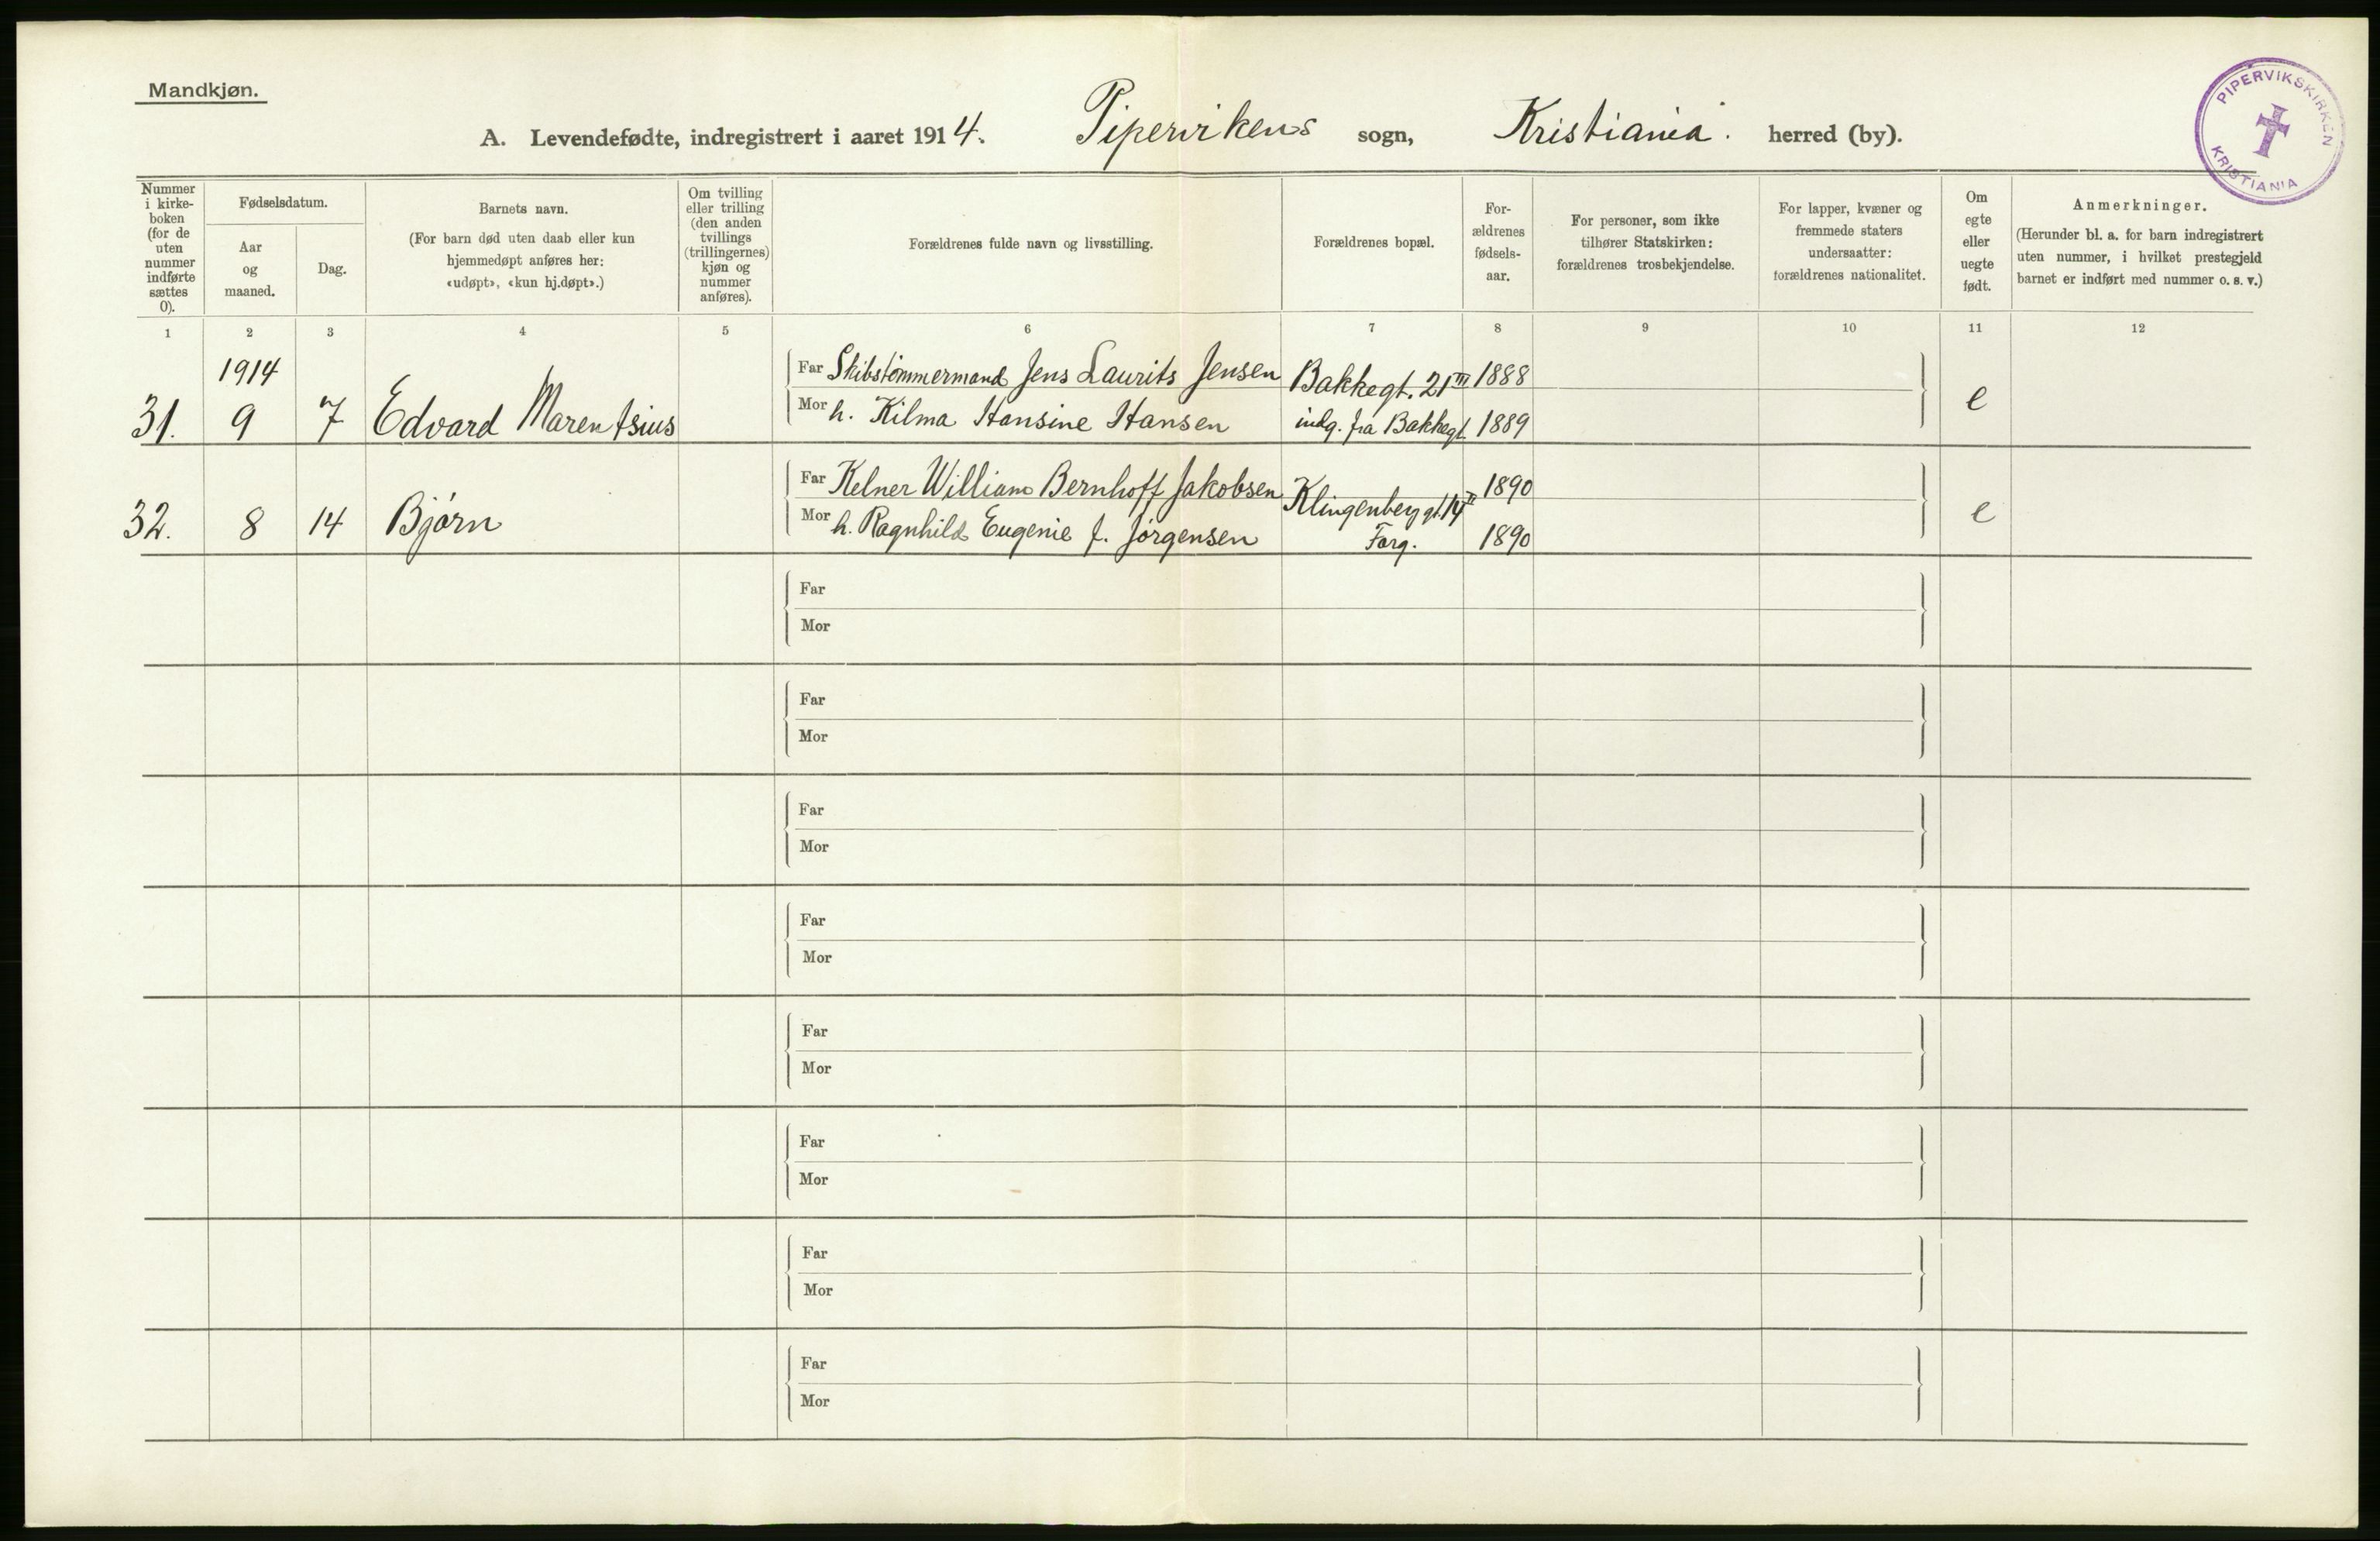 Mandkjøn.
A. Levendefødte, indregistrert i aaret 1914. Pipervikens sogn, Kristiania. herred (by).
PIPERVIKSKIRKEN
KRISTIANIA
Nummer
i kirke-
boken
(for de
uten
nummer
indførte
sættes
0).
Fødselsdatum.
Aar
og
maaned.
Dag.
Barnets navn.
(For barn død uten daab eller kun
hjemmedøpt anføres her:
«udøpt», «kun hj.døpt».)
Om tvilling
eller trilling
(den anden
tvillings
(trillingernes)
kjøn og
nummer
anføres).
Forældrenes fulde navn og livsstilling.
Forældrenes bopæl.
For-
ældrenes
fødsels-
aar.
For personer, som ikke
tilhører Statskirken:
forældrenes trosbekjendelse.
For lapper, kvæner og
fremmede staters
undersaatter:
forældrenes nationalitet.
Om
egte
eller
uegte
født.
Anmerkninger.
(Herunder bl. a. for barn indregistrert
uten nummer, i hvilket prestegjeld
barnet er indført med nummer o. s. v.)
1 2 3 4 5 6 7 8 9 10 11 12
1914
31. 9 7 Edvard Marentsius
Far Skibstømmermand Jens Laurits Jensen
Mor h. Kilma Hansine Hansen
Bakkegt. 21 III
indg. fra Bakkegt.
1888
1889
e
32. 8 14 Bjørn
Far Kelner William Bernhoff Jakobsen
Mor h. Ragnhild Eugenie f. Jørgensen
Klingenberggt. 14 II
Forg.
1890
1890
e
Far
Mor
Far
Mor
Far
Mor
Far
Mor
Far
Mor
Far
Mor
Far
Mor
Far
Mor